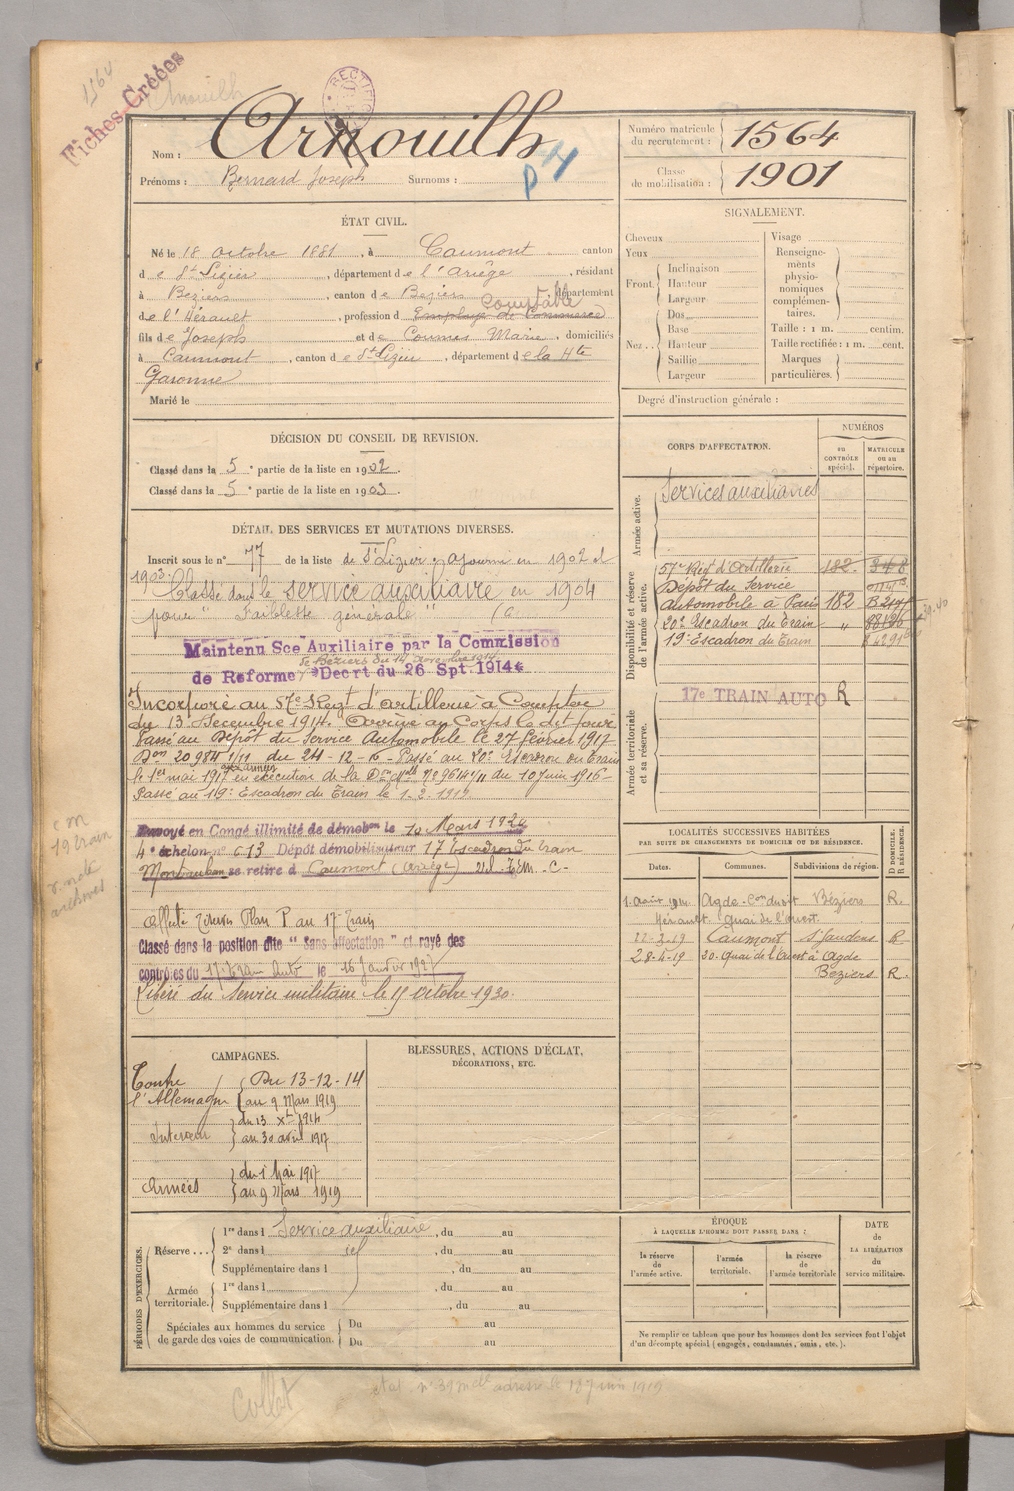 1564
Fiches Créées
Arnouilh
RECTIFI
Nom : Arnouilh
Prénoms : Bernard Joseph Surnoms :
P
Numéro matricule du recrutement : 1564
Classe de mobilisation : 1901
ÉTAT CIVIL.
Né le 18 octobre 1881, à Caumont canton
de St Lizier, département de l'Ariège, résidant
à Béziers, canton de Béziers département
Comptable
de l'Hérault, profession d Employé de Commerce
fils de Joseph et de Coumes Marie, domiciliés
à Caumont, canton de St Lizier, département de la Hte
Garonne
Marié le
SIGNALEMENT.
Cheveux
Yeux
Front. Inclinaison
Hauteur
Largeur
Nez.. Dos
Base
Hauteur
Saillie
Largeur
Visage
Renseignements physionomiques complémentaires.
Taille : 1 m. centim.
Taille rectifiée : 1 m. cent.
Marques particulières.
Degré d'instruction générale :
DÉCISION DU CONSEIL DE REVISION.
Classé dans la 5e partie de la liste en 1902.
Classé dans la 5e partie de la liste en 1903.
DÉTAIL DES SERVICES ET MUTATIONS DIVERSES.
Inscrit sous le n° 77 de la liste de St Lizier ajourné en 1902 et
1903. Classé dans le service auxiliaire en 1904
pour "Faiblesse générale"
Maintenu Sce Auxiliaire par la Commission
de Béziers du 14 novembre 1914
de Réforme Décrt du 26 Spt. 1914
Incorporé au 57e Régt d'artillerie à Compter
du 13 Décembre 1914. Arrivé au Corps le dit jour
Passé au Dépôt du Service Automobile le 27 février 1917
Don 20984 1/11 du 24-12-16 - Passé au 20e Escadron du Train
le 1er mai 1917 en exécution de la Don Nlle N° 9614 1/11 du 10 juin 1916-
Passé au 19e Escadron du Train le 1.2.1919
Envoyé en Congé illimité de démobon le 10 Mars 1920
4e échelon n° 613 Dépôt démobilisateur 17 Escadron du train
Montauban se retire à Caumont (Ariège)
Affecté Plan P au 17 Train
Classé dans la position dite "Sans affectation" et rayé des
contrôles du 17e Train Auto le 16 Janvier 1927
Libéré du service militaire le 15 octobre 1930.
CORPS D'AFFECTATION.
NUMÉROS
au CONTRÔLE spécial.
MATRICULE ou au répertoire.
Armée active.
Services auxiliaires
Disponibilité et réserve de l'armée active.
57e Régt d'Artillerie 182.
Dépôt du Service
Automobile à Paris 182
20e Escadron du Train "
19e Escadron du Train
Armée territoriale et sa réserve.
17e TRAIN AUTO R
LOCALITÉS SUCCESSIVES HABITÉES
PAR SUITE DE CHANGEMENTS DE DOMICILE OU DE RÉSIDENCE.
D DOMICILE. R RÉSIDENCE.
Dates. Communes. Subdivisions de région.
Agde Béziers R.
Hérault quai de l'ouest.
22-3-19 Caumont St Gaudens R
28-4-19 30. Quai de l'Ouest à Agde
Béziers R.
c m
19 train
archives
CAMPAGNES.
Contre l'Allemagne Du 13-12-14
au 9 Mars 1919
Intérieur du 13 Xbre 1914
au 30 avril 1917
Armées du 1 Mai 1917
au 9 Mars 1919
BLESSURES, ACTIONS D'ÉCLAT,
DÉCORATIONS, ETC.
PÉRIODES D'EXERCICES.
Réserve... 1re dans l Service auxiliaire, du au
2e dans l id, du au
Supplémentaire dans l, du au
Armée territoriale. 1re dans l, du au
Supplémentaire dans l, du au
Spéciales aux hommes du service de garde des voies de communication. Du au
Du au
ÉPOQUE
À LAQUELLE L'HOMME DOIT PASSER DANS :
la réserve de l'armée active.
l'armée territoriale.
la réserve de l'armée territoriale
DATE DE LA LIBÉRATION du service militaire.
Ne remplir ce tableau que pour les hommes dont les services font l'objet
d'un décompte spécial (engagés, condamnés, omis, etc.).
Collat